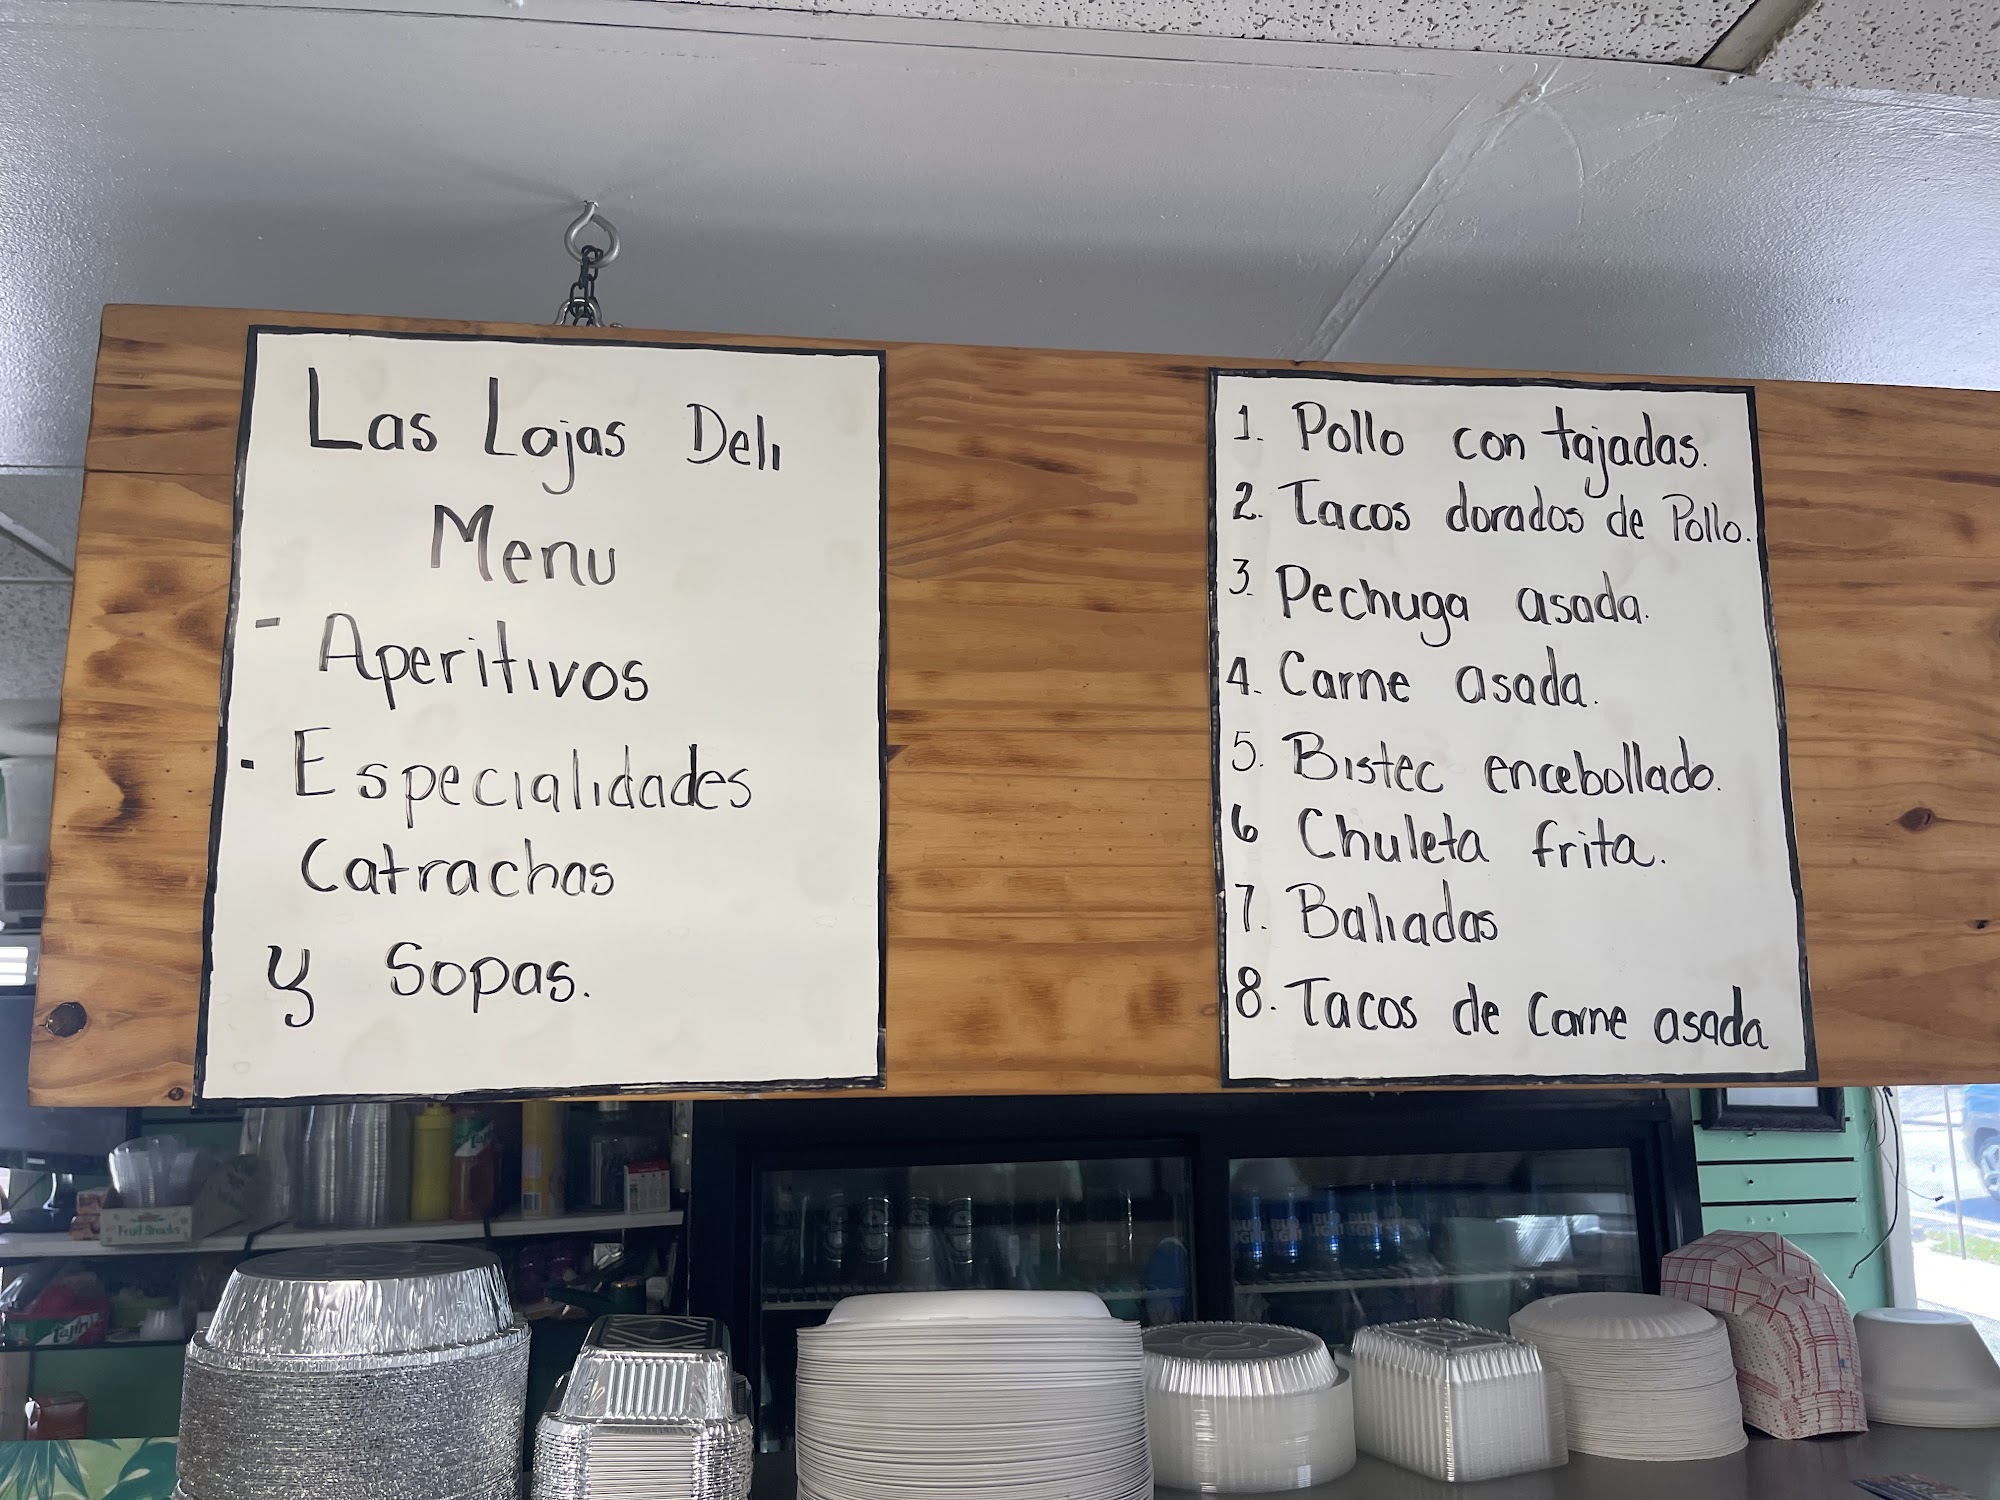 Las Lojas Deli
Menu
- Aperitivos
- Especialidades
Catrachas
y Sopas.
1. Pollo con tajadas.
2. Tacos dorados de Pollo.
3. Pechuga asada.
4. Carne asada.
5. Bistec encebollado.
6 Chuleta frita.
7. Baliadas
8. Tacos de Carne asada
Fruit Snacks
Tajín
BUD LIGHT